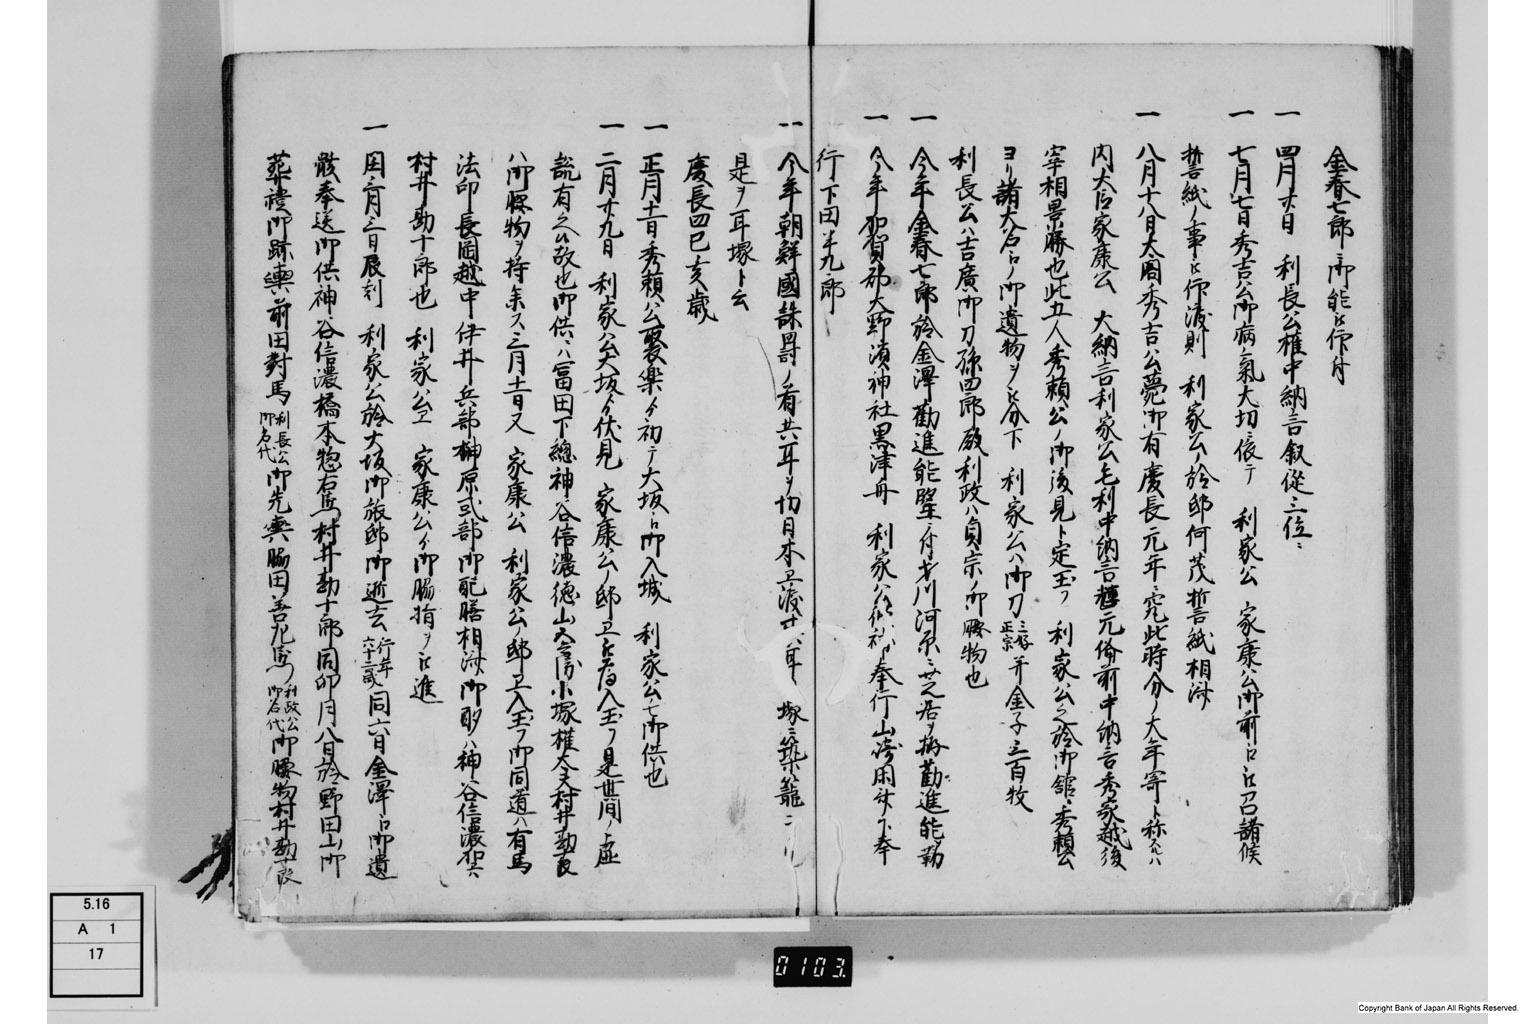 金春七郎ニ御能被仰付
一 四月廿日 利長公権中納言叙従三位ニ
一 七月七日秀吉公御病氣大切ニ依テ 利家公 家康公御前ニ被召諸候
誓紙ノ事被仰渡則 利家公ノ於邸何茂誓紙相済
一 八月十八日大閤秀吉公薨御有慶長元年ニ 此時分ノ大年寄ト称スルハ
内大臣家康公 大納言利家公毛利中納言輝元備前中納言秀家越後
宰相景勝也此五人秀頼公ノ御後見ト定玉フ 利家公之於御舘ニ秀頼公
ヨリ諸大名ニノ御遺物ヲ被分下 利家公ハ御刀三好正宗并金子三百枚
利長公ハ吉廣御刀孫四郎殿利政ハ貞宗ノ御腰物也
一 今年金春七郎於金澤勧進能 才川河原ニ芝居ヲ構勧進能ヲ勤
一 今年加賀郡大野湊神社黒津舟 利家公 奉行山崎 奉
行下田半九郎
一 今年朝鮮國誅罸ノ者共耳ヲ切日本ヱ渡 耳 塚ニ築籠
是ヲ耳塚ト云
慶長四己亥歳
一 正月十一日秀頼公聚楽ゟ初テ大坂ニ御入城 利家公モ御供也
一 二月廿九日 利家公大坂ゟ伏見 家康公ノ邸ヱ 入玉フ是世間ノ虚
説有之故也御供ニハ冨田下總神谷信濃徳山五兵衛小塚権大夫村井勘十郎
ハ御腰物ヲ持参ス三月十一日又 家康公 利家公ノ邸ヱ入玉フ御同道ハ有馬
法印長岡越中伊井兵部榊原式部御配膳相済御酌ハ神谷信濃
村井勘十郎也 利家公ヱ 家康公ゟ御脇指ヲ被進
一 閏三月三日辰刻 利家公於大坂御旅邸御逝去行年六十二歳同六日金澤ニ御遺
骸奉送御供神谷信濃橋本惣右衛門村井勘十郎同卯月八日於野田山御
葬禮御跡輿前田對馬利長公御名代御先輿脇田善左衛門利政公御名代御腰物村井勘十郎
5.16
A 1
17
0103.
Copyright Bank of Japan All Rights Reserved.